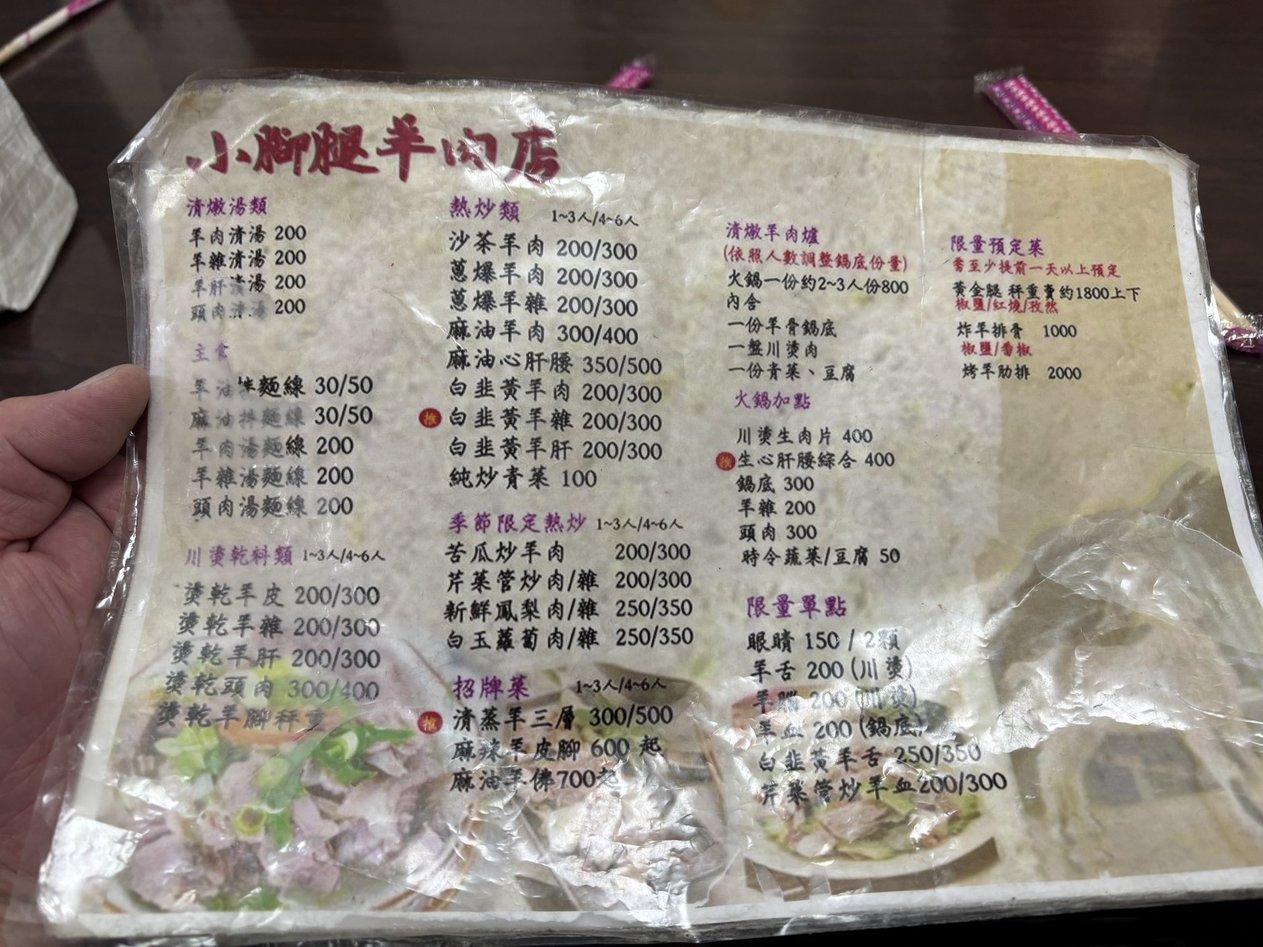 小腳腿羊肉店
清燉湯類
羊肉清湯 200
羊雜清湯 200
羊肝清湯 200
頭肉清湯 200
主食
羊油拌麵線 30/50
麻油拌麵線 30/50
羊肉湯麵線 200
羊雜湯麵線 200
頭肉湯麵線 200
川燙乾料類 1~3人/4~6人
燙乾羊皮 200/300
燙乾羊雜 200/300
燙乾羊肝 200/300
燙乾頭肉 300/400
燙乾羊腳秤重
熱炒類 1~3人/4~6人
沙茶羊肉 200/300
蔥爆羊肉 200/300
蔥爆羊雜 200/300
麻油羊肉 300/400
麻油心肝腰 350/500
白韭黃羊肉 200/300
推 白韭黃羊雜 200/300
白韭黃羊肝 200/300
純炒青菜 100
季節限定熱炒 1~3人/4~6人
苦瓜炒羊肉 200/300
芹菜管炒肉/雜 200/300
新鮮鳳梨肉/雜 250/350
白玉蘿蔔肉/雜 250/350
招牌菜 1~3人/4~6人
推 清蒸羊三層 300/500
麻辣羊皮腳 600 起
麻油羊佛700起
清燉羊肉爐
(依照人數調整鍋底份量)
火鍋一份約2~3人份800
內含
一份羊骨鍋底
一盤川燙肉
一份青菜、豆腐
火鍋加點
川燙生肉片 400
推 生心肝腰綜合 400
鍋底 300
羊雜 200
頭肉 300
時令蔬菜/豆腐 50
限量單點
眼睛 150 / 2顆
羊舌 200 (川燙)
羊腦 200 (川燙)
羊血 200 (鍋底)
白韭黃羊舌 250/350
芹菜管炒羊血200/300
限量預定菜
需至少提前一天以上預定
黃金腿 秤重賣約1800上下
椒鹽/紅燒/孜然
炸羊排骨 1000
椒鹽/香椒
烤羊肋排 2000